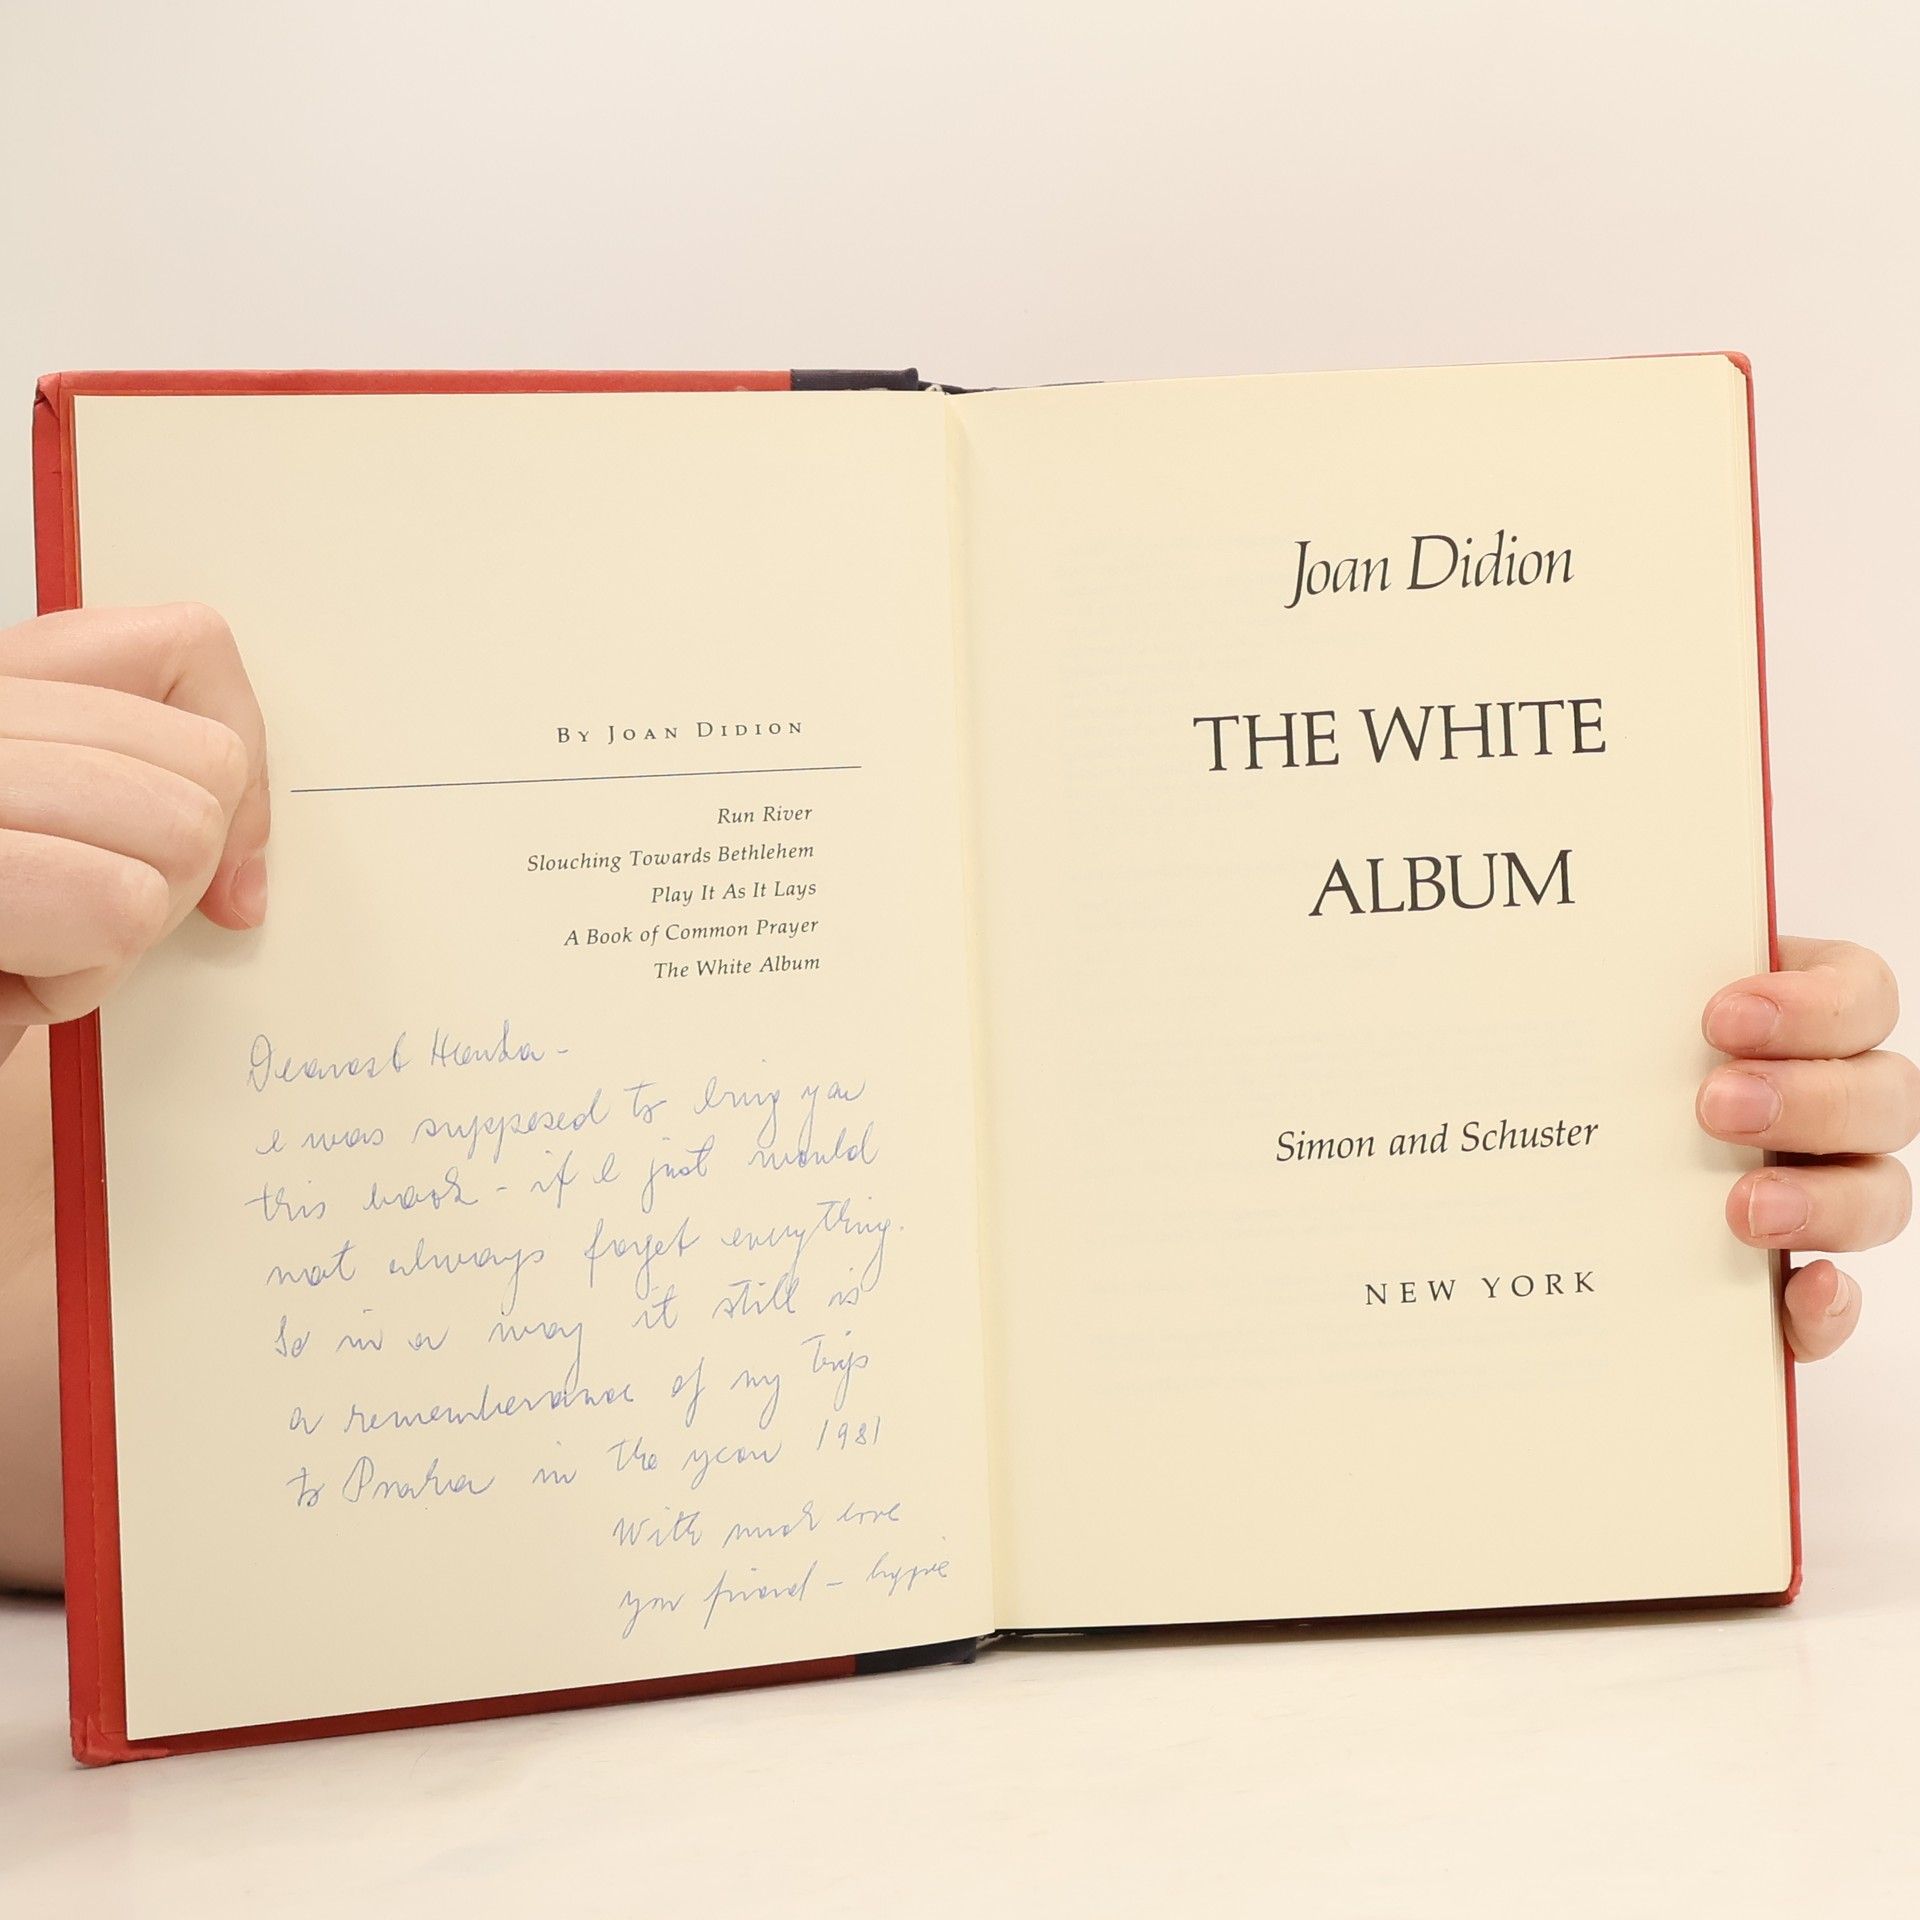 BY JOAN DIDION
Run River
Slouching Towards Bethlehem
Play It As It Lays
A Book of Common Prayer
The White Album
Dearest -
I was supposed to bring you
this book - if I just would
not always forget everything.
So in a way it still is
a rememberance of my trips
to Praha in the year 1981
With much love
your friend -
Joan Didion
THE WHITE
ALBUM
Simon and Schuster
NEW YORK